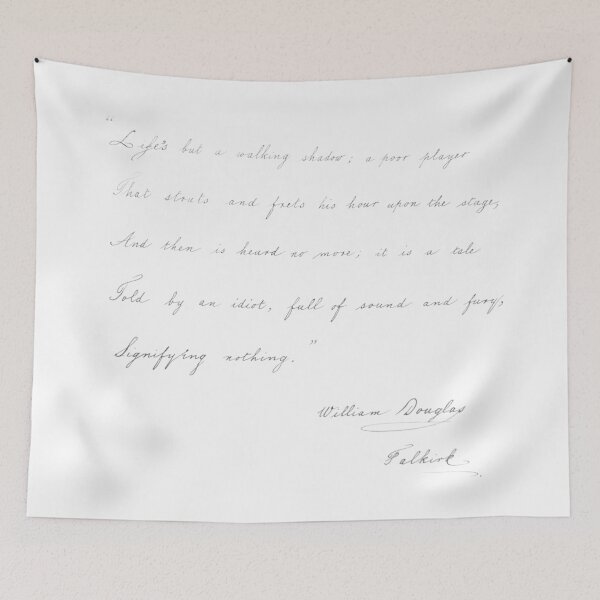 "
Life's but a walking shadow; a poor player
That struts and frets his hour upon the stage,
And then is heard no more; it is a tale
Told by an idiot, full of sound and fury,
Signifying nothing."
William Douglas
Falkirk.